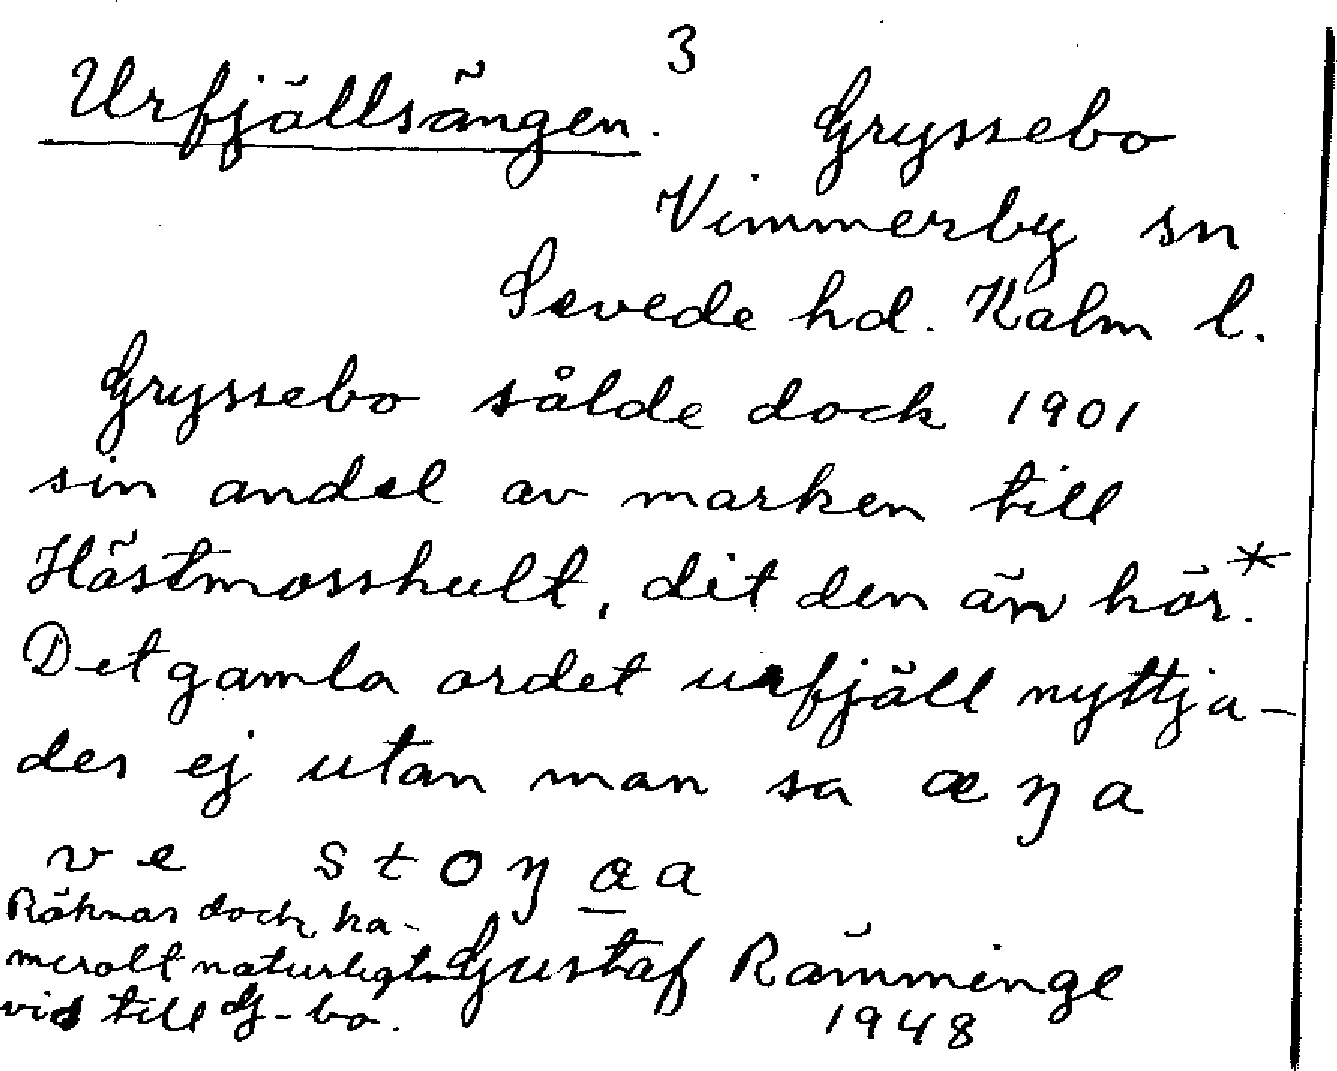 3
Urfjällsängen. Gryssebo
Vimmerby sn
Sevede hd. Kalm l.
Gryssebo sålde dock 1901
sin andel av marken till
Hästmosshult, dit den än hör.*
Det gamla ordet urfjäll nyttja-
des ej utan man sa æŋa
ve stoŋaa
Räknas dock ka-
meralt naturligt-
vis till G-bo.
Gustaf Rämminge
1948